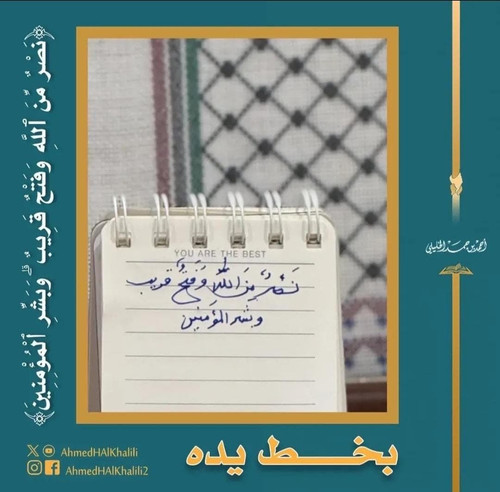 ﴿نَصْرٌ مِّنَ ٱللَّهِ وَفَتْحٌ قَرِيبٌ ۗ وَبَشِّرِ ٱلْمُؤْمِنِينَ﴾
YOU ARE THE BEST
نَصْرٌ مِنَ اللَّهِ وَفَتْحٌ قريب
وبشر المؤمنين
أحمد بن حمد الخليلي
بخـــط يده
AhmedHAlKhalili
AhmedHAlKhalili2